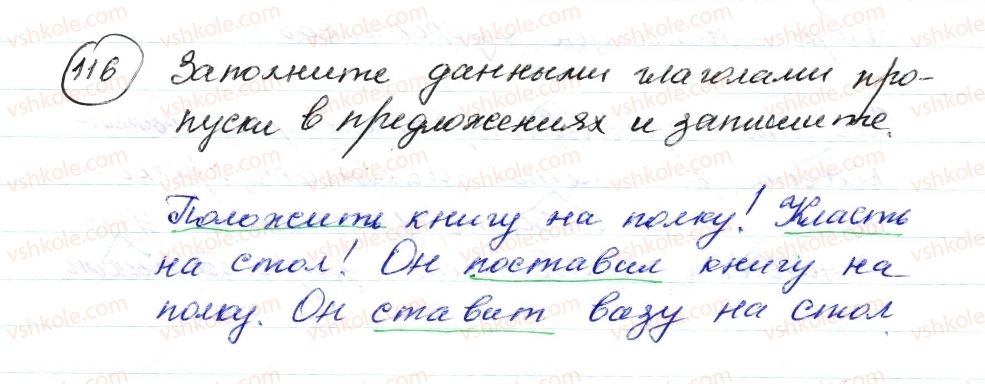 116 Заполните данными глаголами про-
пуски в предложениях и запишите.
Положить книгу на полку! Класть
на стол! Он поставил книгу на
полку. Он ставит вазу на стол